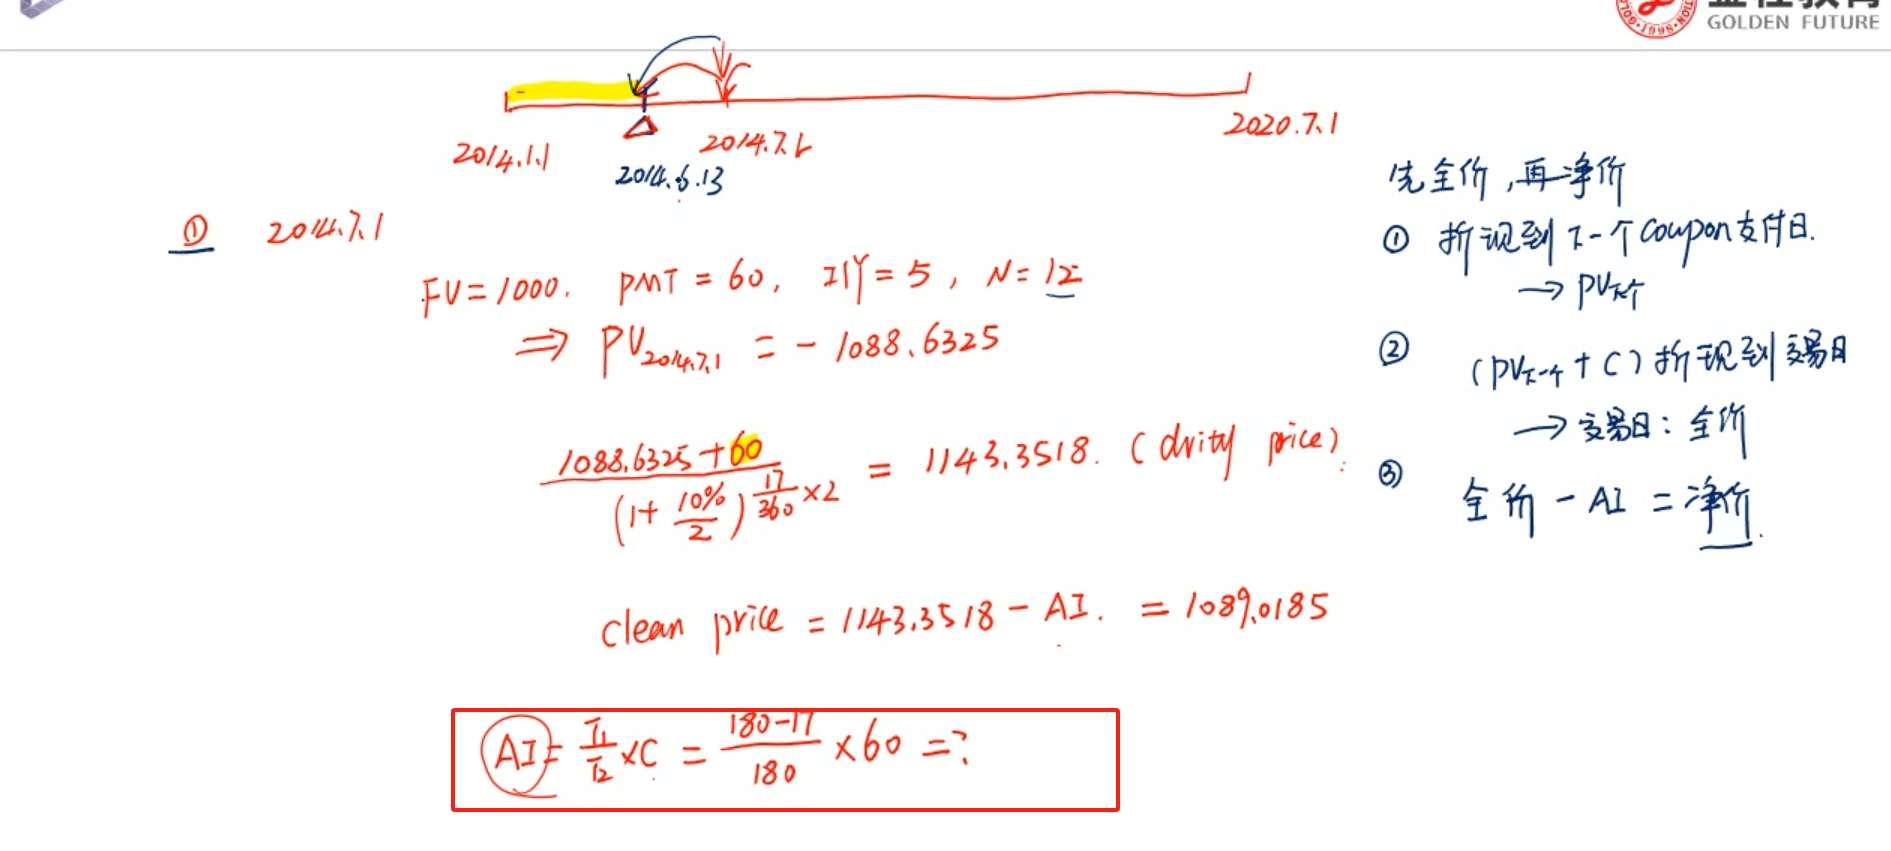 金程教育
GOLDEN FUTURE
2014.1.1
2014.6.13
2014.7.1
2020.7.1
① 2014.7.1
FV=1000. PMT=60, I/Y=5, N=12
⇒ PV2014.7.1 = -1088.6325
1088.6325+60
(1+10%/2)^17/360×2
= 1143.3518. (drity price).
clean price = 1143.3518 - AI. = 1089.0185
AI = T1/T2 × C = 180-17/180 × 60 = ?
先全价,再净价
① 折现到下一个coupon支付日.
→ PV下一个
② (PV下一个 + C)折现到交易日
→ 交易日: 全价
③ 全价 - AI = 净价.